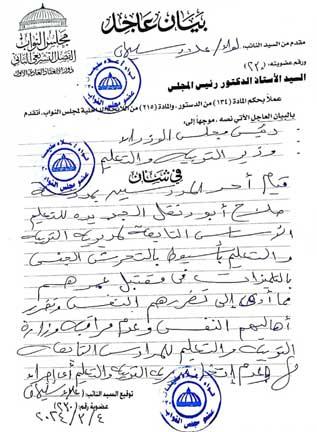 بيان عاجل
مجلس النواب
الفصل التشريعي الثاني
دور الانعقاد العادي الرابع
مقدم من السيد النائب: لواء/ علاء سليمان
ورقم عضويته: (٢٢٠)
السيد الأستاذ الدكتور رئيس المجلس
عملاً بحكم المادة (١٣٤) من الدستور، والمادة (٢١٥) من اللائحة الداخلية لمجلس النواب، أتقدم
بالبيان العاجل الآتي نصه، موجها إلى:
- رئيس مجلس الوزراء
- وزير التربية والتعليم
في شأن
قيام أحد المدرسين بمدرسة
صلاح أبو دنقل الجديدة للتعليم
الأساسي التابعة لمديرية التربية
والتعليم بأسيوط بالتحرش الجنسي
بالتلميذات في مقتبل عمرهم
مما أدى إلى تضررهم النفسي وتضرر
أهاليهم النفسي وعدم مراقبة وزارة
التربية والتعليم للمدارس التابعة
وعدم اتخاذ مديرية التربية والتعليم أي إجراء
توقيع السيد النائب: علاء سليمان
عضوية رقم: (٢٢٠)
٢٠٢٤/٣/٤